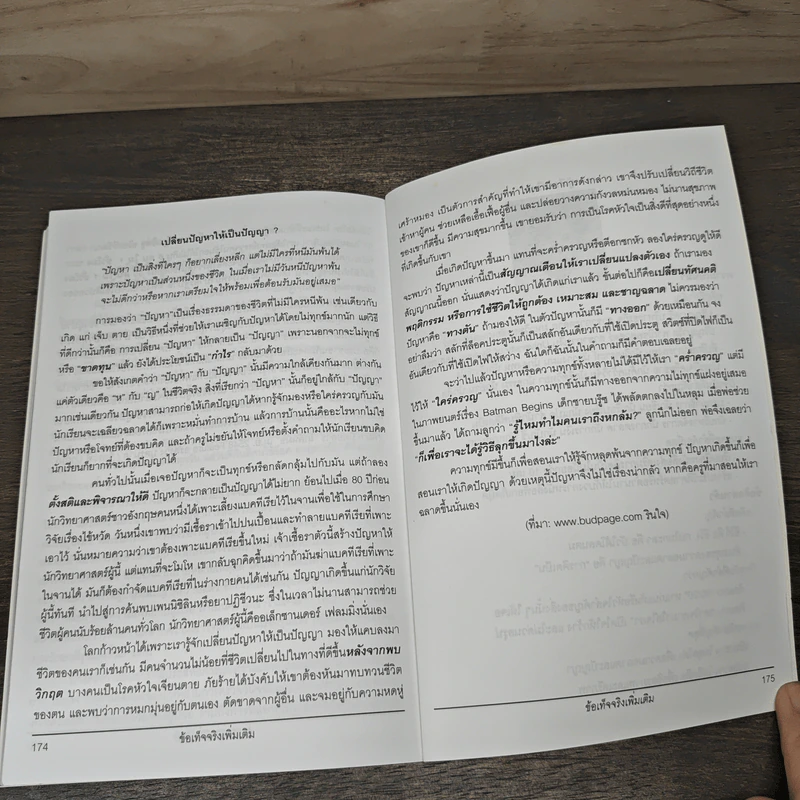 เปลี่ยนปัญหาให้เป็นปัญญา ?
"ปัญหา เป็นสิ่งที่ใครๆ ก็อยากเลี่ยงหลีก แต่ไม่มีใครที่หนีมันพ้นได้
เพราะปัญหาเป็นส่วนหนึ่งของชีวิต ในเมื่อเราไม่มีวันหนีปัญหาพ้น
จะไม่ดีกว่าหรือหากเราเตรียมใจให้พร้อมเพื่อต้อนรับมันอยู่เสมอ"
การมองว่า "ปัญหา"เป็นเรื่องธรรมดาของชีวิตที่ไม่มีใครหนีพ้น เช่นเดียวกับ
เกิด แก่ เจ็บ ตาย เป็นวิธีหนึ่งที่ช่วยให้เราเผชิญกับปัญหาได้โดยไม่ทุกข์มากนัก แต่วิธี
ที่ดีกว่านั้นก็คือ การเปลี่ยน "ปัญหา" ให้กลายเป็น "ปัญญา" เพราะนอกจากจะไม่ทุกข์
หรือ "ขาดทุน" แล้ว ยังได้ประโยชน์เป็น "กำไร" กลับมาด้วย
ขอให้สังเกตคำว่า "ปัญหา" กับ "ปัญญา" นั้นมีความใกล้เคียงกันมาก ต่างกัน
แค่ตัวเดียวคือ "ห" กับ "ญ" ในชีวิตจริง สิ่งที่เรียกว่า "ปัญหา" นั้นก็อยู่ใกล้กับ "ปัญญา"
มากเช่นเดียวกัน ปัญหาสามารถก่อให้เกิดปัญญาได้หากรู้จักมองหรือใคร่ครวญกับมัน
นักเรียนจะเฉลียวฉลาดได้ก็เพราะหมั่นทำการบ้าน แล้วการบ้านนั้นคืออะไรหากไม่ใช่
ปัญหาหรือโจทย์ที่ต้องขบคิด และถ้าครูไม่ขยันให้โจทย์หรือตั้งคำถามให้นักเรียนขบคิด
นักเรียนก็ยากที่จะเกิดปัญญาได้
คนทั่วไปนั้นเมื่อเจอปัญหาก็จะเป็นทุกข์หรือกลัดกลุ้มไปกับมัน แต่ถ้าลอง
ตั้งสติและพิจารณาให้ดี ปัญหาก็จะกลายเป็นปัญญาได้ไม่ยาก ย้อนไปเมื่อ 80 ปีก่อน
นักวิทยาศาสตร์ชาวอังกฤษคนหนึ่งได้เพาะเลี้ยงแบคทีเรียไว้ในจานเพื่อใช้ในการศึกษา
วิจัยเรื่องไข้หวัด วันหนึ่งเขาพบว่ามีเชื้อราเข้าไปปนเปื้อนและทำลายแบคทีเรียที่เพาะ
เอาไว้ นั่นหมายความว่าเขาต้องเพาะแบคทีเรียขึ้นใหม่ เจ้าเชื้อราตัวนี้สร้างปัญหาให้
นักวิทยาศาสตร์ผู้นี้ แต่แทนที่จะโมโห เขากลับฉุกคิดขึ้นมาว่าถ้ามันฆ่าแบคทีเรียที่เพาะ
ในจานได้ มันก็ต้องกำจัดแบคทีเรียที่ในร่างกายคนได้เช่นกัน ปัญญาเกิดขึ้นแก่นักวิจัย
ผู้นี้ทันที นำไปสู่การค้นพบเพนนิซิลินหรือยาปฏิชีวนะ ซึ่งในเวลาไม่นานสามารถช่วย
ชีวิตผู้คนนับร้อยล้านคนทั่วโลก นักวิทยาศาสตร์ผู้นี้คืออเล็กซานเดอร์ เฟลมมิ่งนั่นเอง
โลกก้าวหน้าได้เพราะเรารู้จักเปลี่ยนปัญหาให้เป็นปัญญา มองให้แคบลงมา
ชีวิตของคนเราก็เช่นกัน มีคนจำนวนไม่น้อยที่ชีวิตเปลี่ยนไปในทางที่ดีขึ้นหลังจากพบ
วิกฤต บางคนเป็นโรคหัวใจเจียนตาย ภัยร้ายได้บังคับให้เขาต้องหันมาทบทวนชีวิต
ของตน และพบว่าการหมกมุ่นอยู่กับตนเอง ตัดขาดจากผู้อื่น และจมอยู่กับความหดหู่
174
ข้อเท็จจริงเพิ่มเติม
เศร้าหมอง เป็นตัวการสำคัญที่ทำให้เขามีอาการดังกล่าว เขาจึงปรับเปลี่ยนวิถีชีวิต
เข้าหาผู้คน ช่วยเหลือเอื้อเฟื้อผู้อื่น และปล่อยวางความกังวลหม่นหมอง ไม่นานสุขภาพ
ของเขาก็ดีขึ้น มีความสุขมากขึ้น เขายอมรับว่า การเป็นโรคหัวใจเป็นสิ่งดีที่สุดอย่างหนึ่ง
ที่เกิดขึ้นกับเขา
เมื่อเกิดปัญหาขึ้นมา แทนที่จะคร่ำครวญหรือตีอกชกหัว ลองใคร่ครวญดูให้ดี
จะพบว่า ปัญหาเหล่านี้เป็นสัญญาณเตือนให้เราเปลี่ยนแปลงตัวเอง ถ้าเรามอง
สัญญาณนี้ออก นั่นแสดงว่าปัญญาได้เกิดแก่เราแล้ว ขั้นต่อไปก็คือเปลี่ยนทัศนคติ
พฤติกรรม หรือการใช้ชีวิตให้ถูกต้อง เหมาะสม และชาญฉลาด ไม่ควรมองว่า
ปัญหาคือ "ทางตัน" ถ้ามองให้ดี ในตัวปัญหานั้นก็มี "ทางออก" ด้วยเหมือนกัน จง
อย่าลืมว่า สลักที่ล็อคประตูนั้นก็เป็นสลักอันเดียวกับที่ใช้เปิดประตู สวิตช์ที่ปิดไฟก็เป็น
อันเดียวกับที่ใช้เปิดไฟให้สว่าง ฉันใดก็ฉันนั้นในคำถามก็มีคำตอบเฉลยอยู่
จะว่าไปแล้วปัญหาหรือความทุกข์ทั้งหลายไม่ได้มีไว้ให้เรา "คร่ำครวญ" แต่มี
ไว้ให้ "ใคร่ครวญ" นั่นเอง ในความทุกข์นั้นก็มีทางออกจากความไม่ทุกข์แฝงอยู่เสมอ
ในภาพยนตร์เรื่อง Batman Begins เด็กชายบรู๊ซ ได้พลัดตกลงไปในหลุม เมื่อพ่อช่วย
ขึ้นมาแล้ว ได้ถามลูกว่า "รู้ไหมทำไมคนเราถึงหกล้ม?" ลูกนึกไม่ออก พ่อจึงเฉลยว่า
"ก็เพื่อเราจะได้รู้วิธีลุกขึ้นมาไงล่ะ"
ความทุกข์มีขึ้นก็เพื่อสอนเราให้รู้จักหลุดพ้นจากความทุกข์ ปัญหาเกิดขึ้นก็เพื่อ
สอนเราให้เกิดปัญญา ด้วยเหตุนี้ปัญหาจึงไม่ใช่เรื่องน่ากลัว หากคือครูที่มาสอนให้เรา
ฉลาดขึ้นนั่นเอง
(ที่มา: www.budpage.com รินใจ)
175
ข้อเท็จจริงเพิ่มเติม